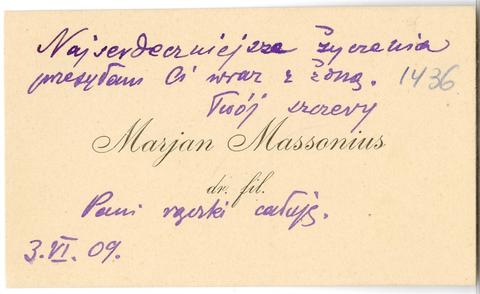 Najserdeczniejsze życzenia
przesyłam Ci wraz z żoną. 1436
Twój szczery
Marjan Massonius
dr. fil.
Pani rączki całuję.
3.VI.09.